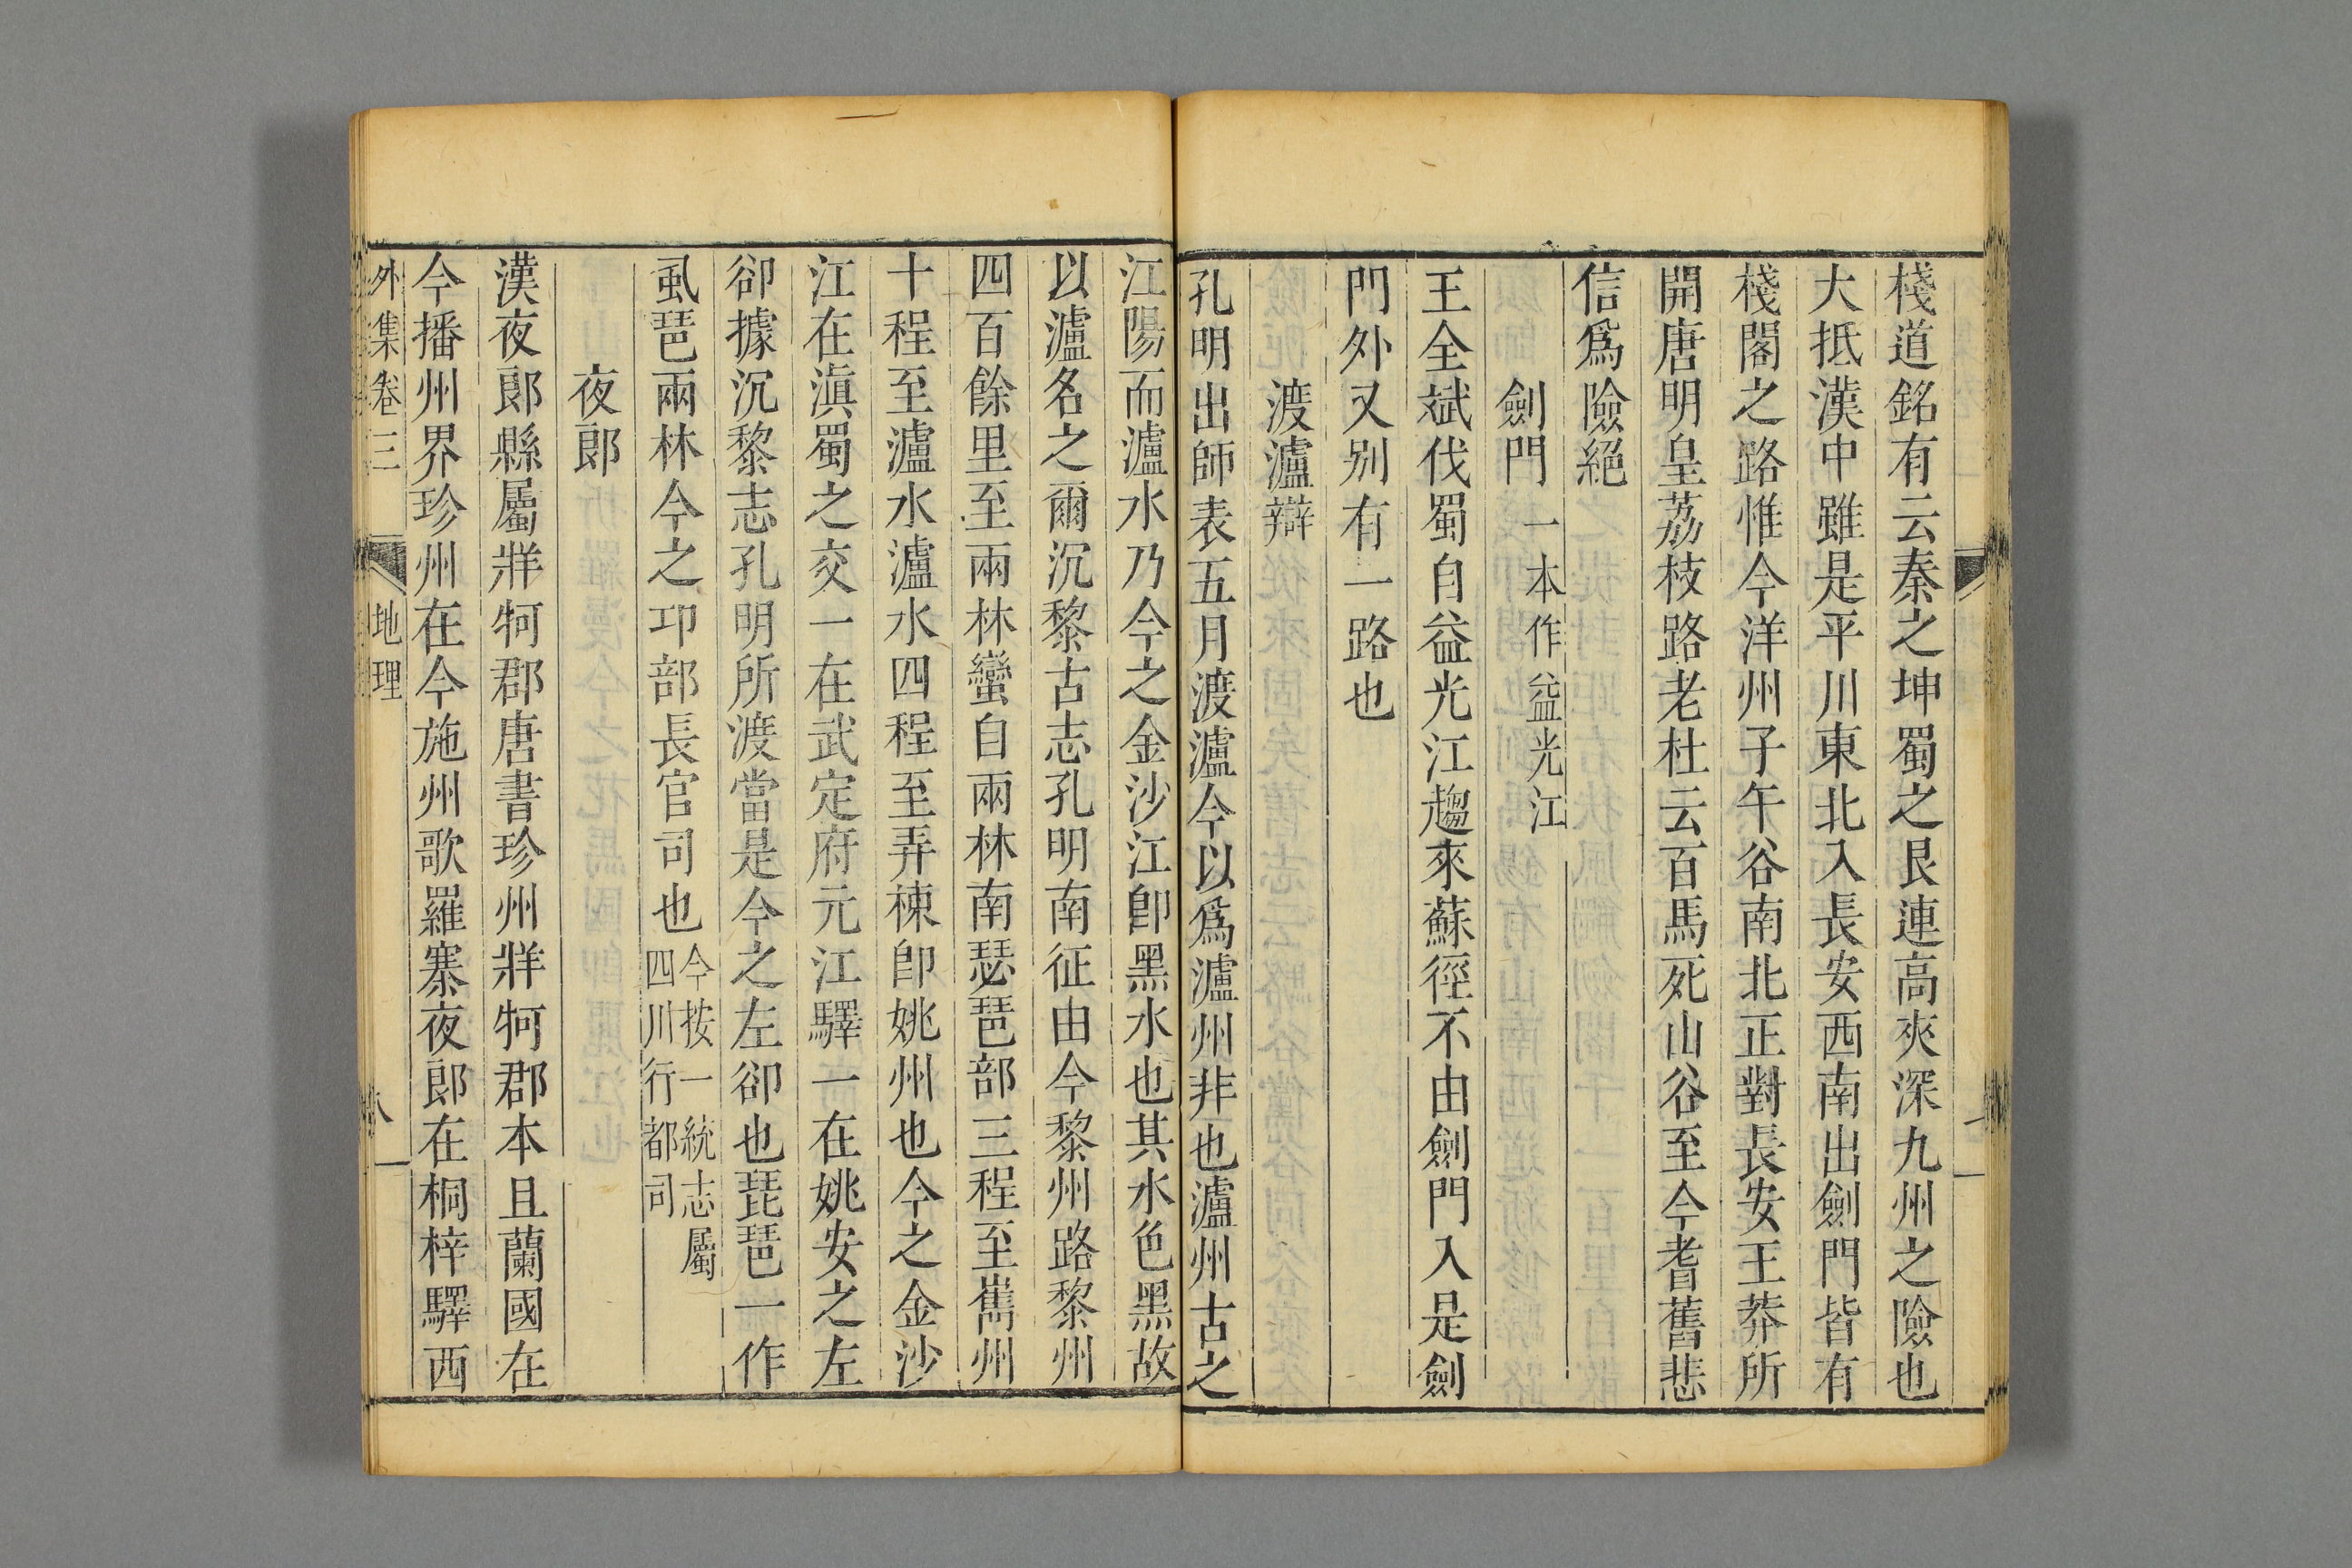 棧道銘有云秦之坤蜀之艮連高夾深九州之險也
大抵漢中雖是平川東北入長安西南出劍門皆有
棧閣之路惟今洋州子午谷南北正對長安王莽所
開唐明皇荔枝路老杜云百馬死山谷至今耆舊悲
信爲險絕
劍門 一本作益光江
王全斌伐蜀自益光江趨來蘇徑不由劍門入是劍
門外又别有一路也
渡瀘辯
孔明出師表五月渡瀘今以爲瀘州非也瀘州古之
江陽而瀘水乃今之金沙江卽黑水也其水色黑故
以瀘名之爾沉黎古志孔明南征由今黎州路黎州
四百餘里至兩林蠻自兩林南瑟琶部三程至嶲州
十程至瀘水瀘水四程至弄棟卽姚州也今之金沙
江在滇蜀之交一在武定府元江驛一在姚安之左
卻據沉黎志孔明所渡當是今之左卻也琵琶一作
虱琶兩林今之邛部長官司也今按一統志屬
四川行都司
夜郎
漢夜郎縣屬牂牁郡唐書珍州牂牁郡本且蘭國在
今播州界珍州在今施州歌羅寨夜郎在桐梓驛西
外集卷三 地理 八